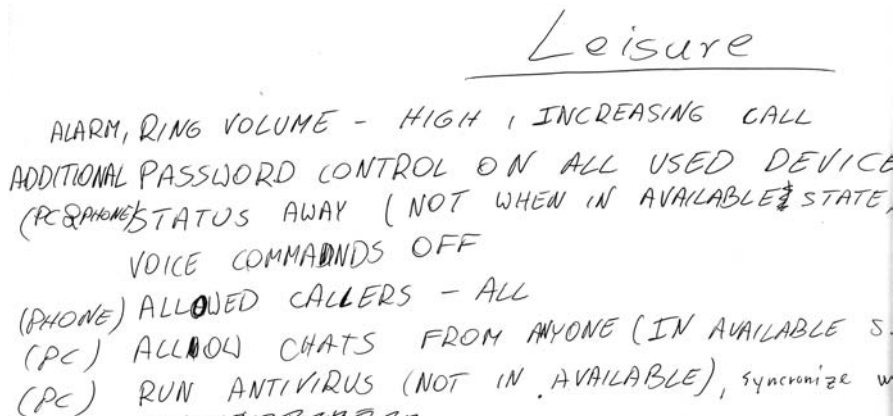 Leisure
ALARM, RING VOLUME - HIGH, INCREASING CALL
ADDITIONAL PASSWORD CONTROL ON ALL USED DEVICE
(PC & PHONE) STATUS AWAY (NOT WHEN IN AVAILABLE STATE,
VOICE COMMANDS OFF
(PHONE) ALLOWED CALLERS - ALL
(PC) ALLOW CHATS FROM ANYONE (IN AVAILABLE S.
(PC) RUN ANTIVIRUS (NOT IN AVAILABLE), syncronize w